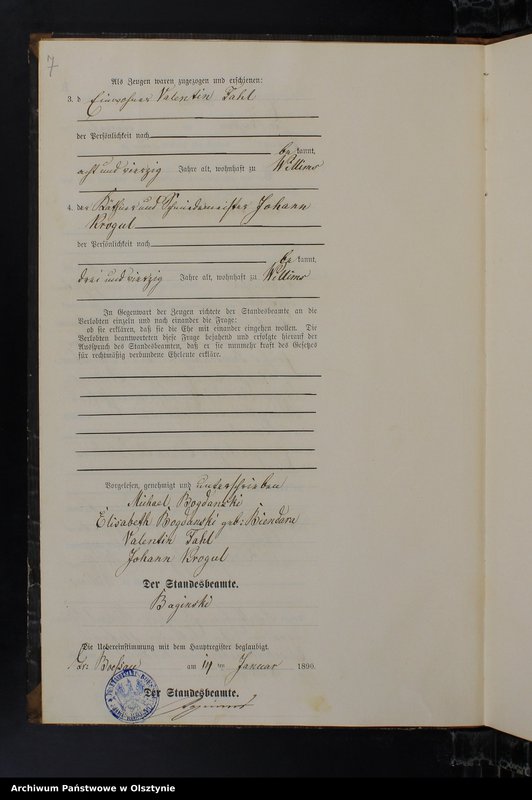 7
Als Zeugen waren zugezogen und erschienen:
3. d Einwohner Valentin Tahl
der Persönlichkeit nach
be kannt,
acht und vierzig Jahre alt, wohnhaft zu Willims
4. der Käthner und Schmiedemeister Johann
Krogul
der Persönlichkeit nach
be kannt,
drei und vierzig Jahre alt, wohnhaft zu Willims
In Gegenwart der Zeugen richtete der Standesbeamte an die
Verlobten einzeln und nach einander die Frage:
ob sie erklären, daß sie die Ehe mit einander eingehen wollen. Die
Verlobten beantworteten diese Frage bejahend und erfolgte hierauf der
Ausspruch des Standesbeamten, daß er sie nunmehr kraft des Gesetzes
für rechtmäßig verbundene Eheleute erkläre.
Vorgelesen, genehmigt und unterschrieben
Michael Bogdanski
Elisabeth Bogdanski geb: Biendara
Valentin Tahl
Johann Krogul
Der Standesbeamte.
Baginski
Die Uebereinstimmung mit dem Hauptregister beglaubigt.
Gr: Boessau am 14 ten Januar 1890.
Der Standesbeamte.
Archiwum Państwowe w Olsztynie